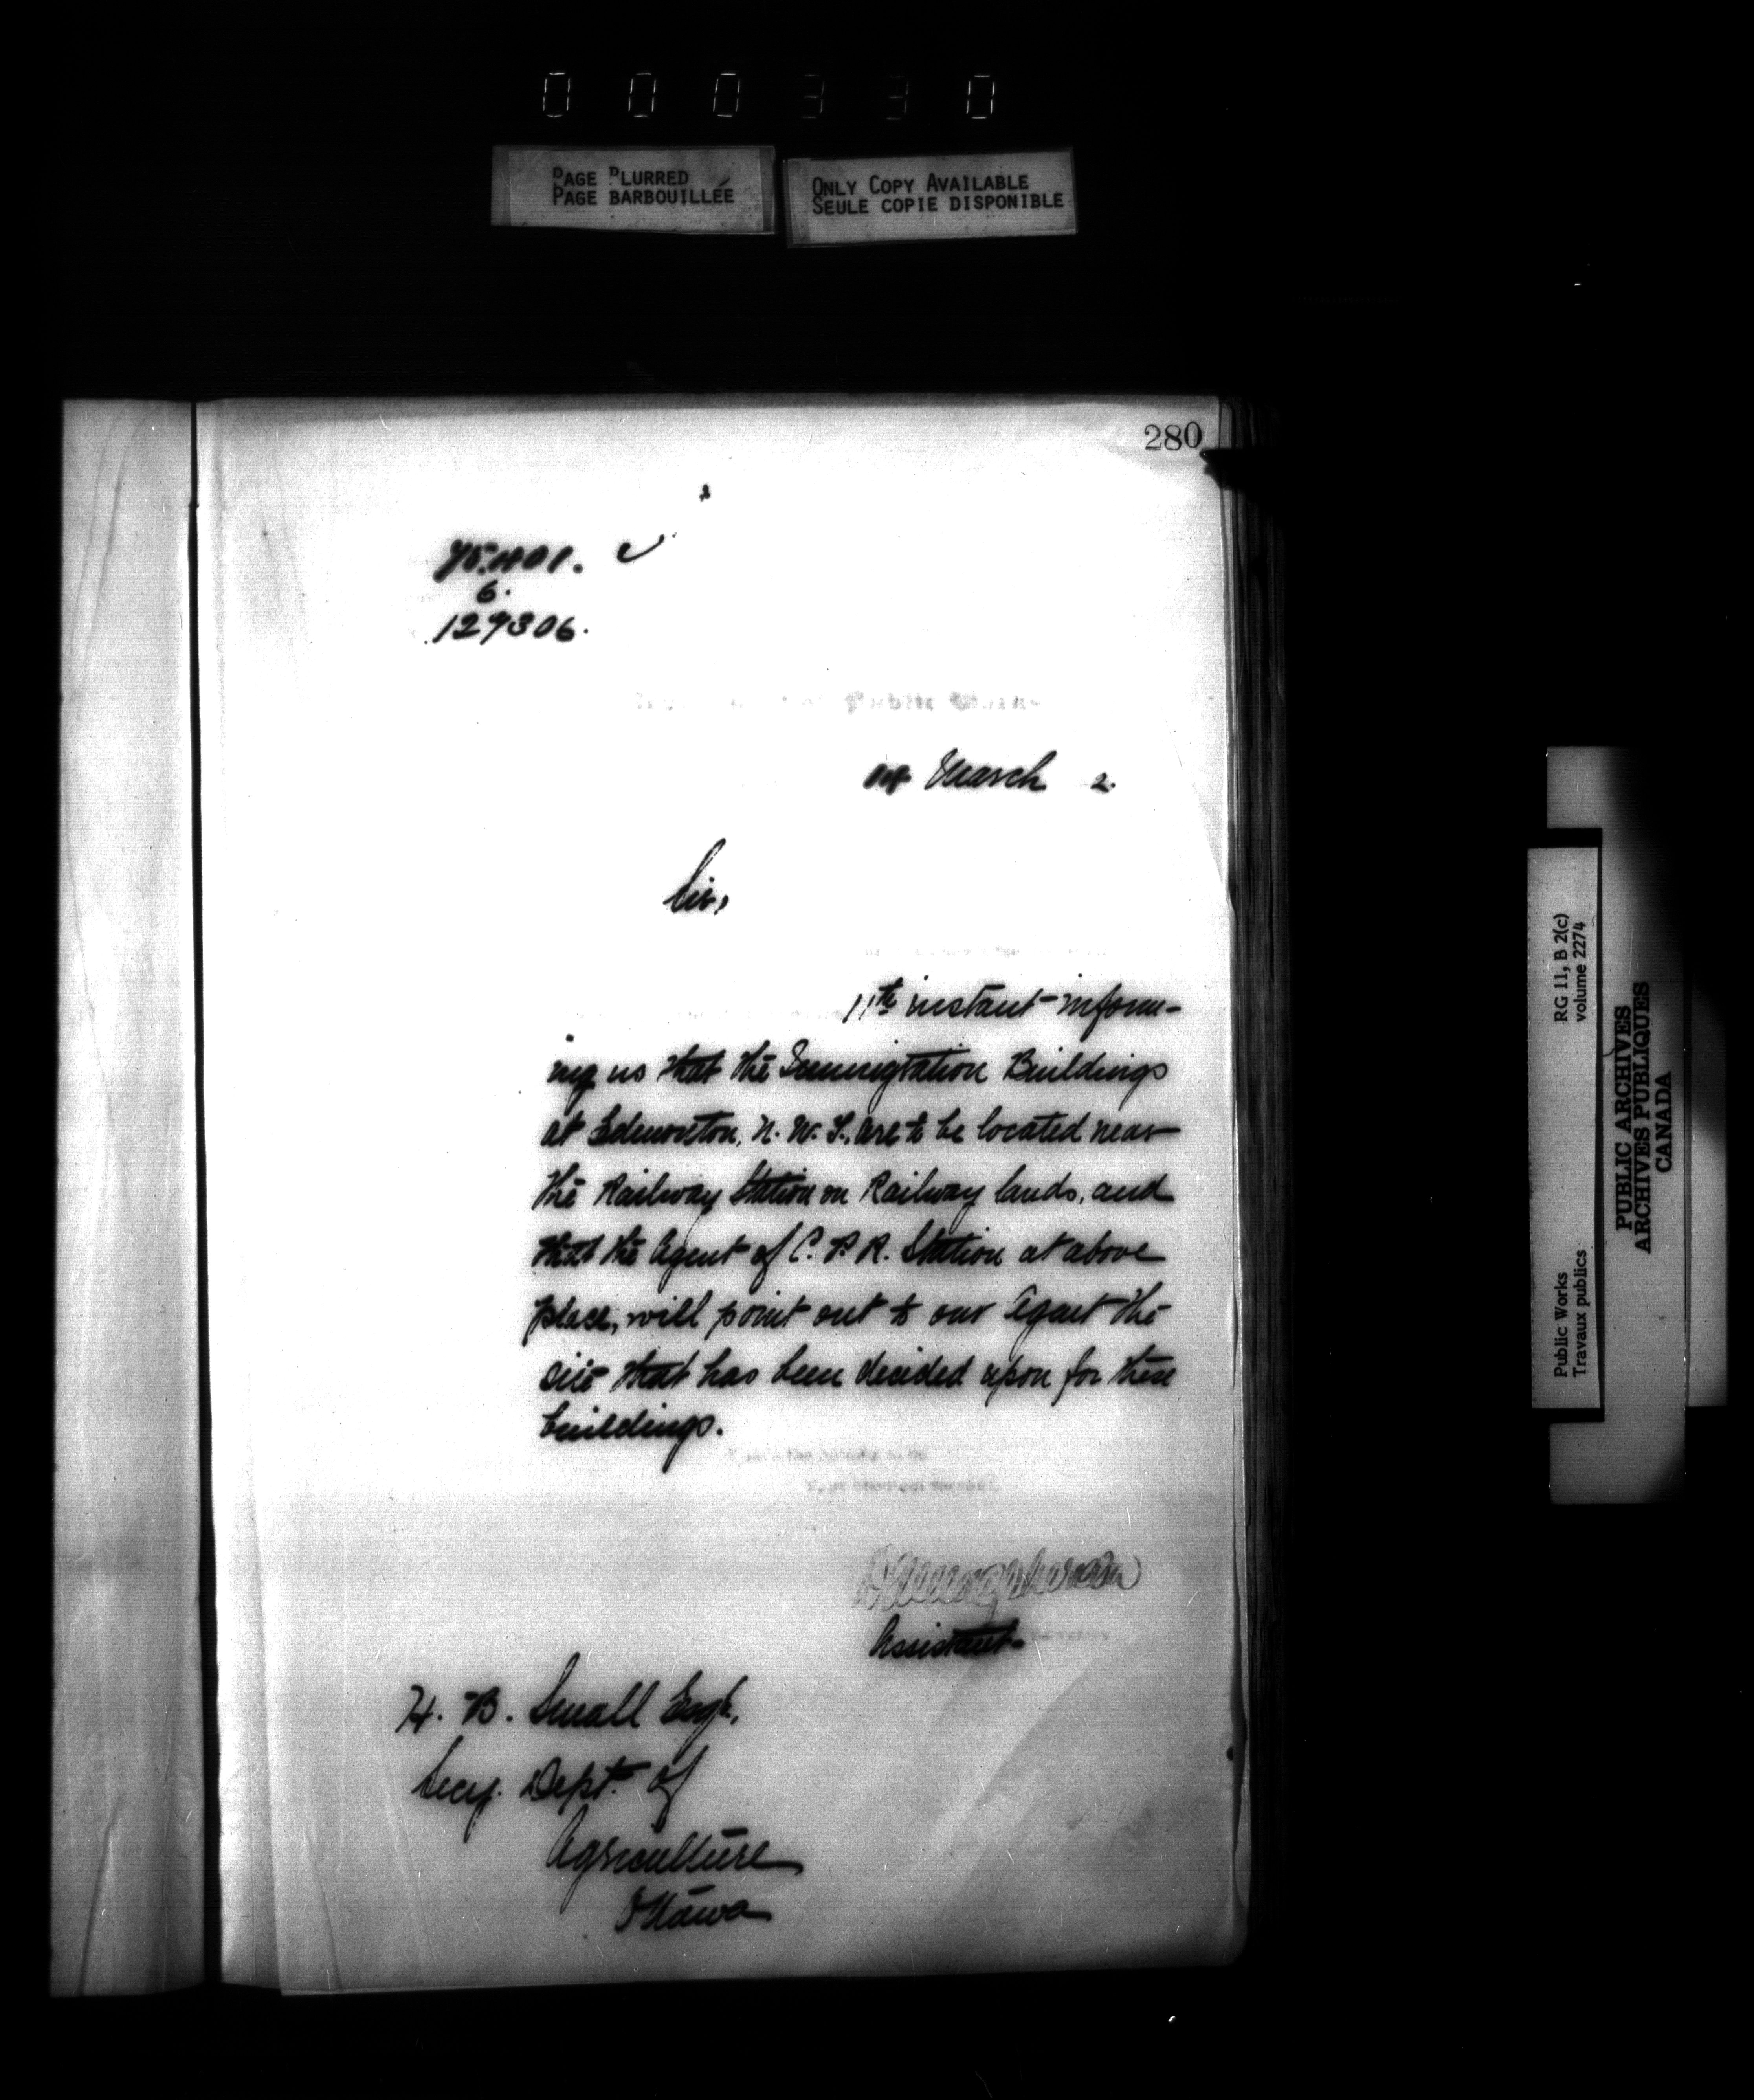 0 0 0 3 3 0
PAGE BLURRED
PAGE BARBOUILLÉE
ONLY COPY AVAILABLE
SEULE COPIE DISPONIBLE
280
6.
127306.
Public Works
March 2.
Sir,
11th instant inform-
ing us that the Immigration Buildings
at Edmonton, N. W. T., are to be located near
the Railway Station on Railway lands, and
that the Agent of C. P. R. Station at above
place, will point out to our Agent the
site that has been decided upon for these
buildings.
Assistant
H. B. Small Esqr.
Secy. Dept. of
Agriculture
Ottawa
Public Works
Travaux publics
RG 11, B 2(c)
volume 2274
PUBLIC ARCHIVES
ARCHIVES PUBLIQUES
CANADA